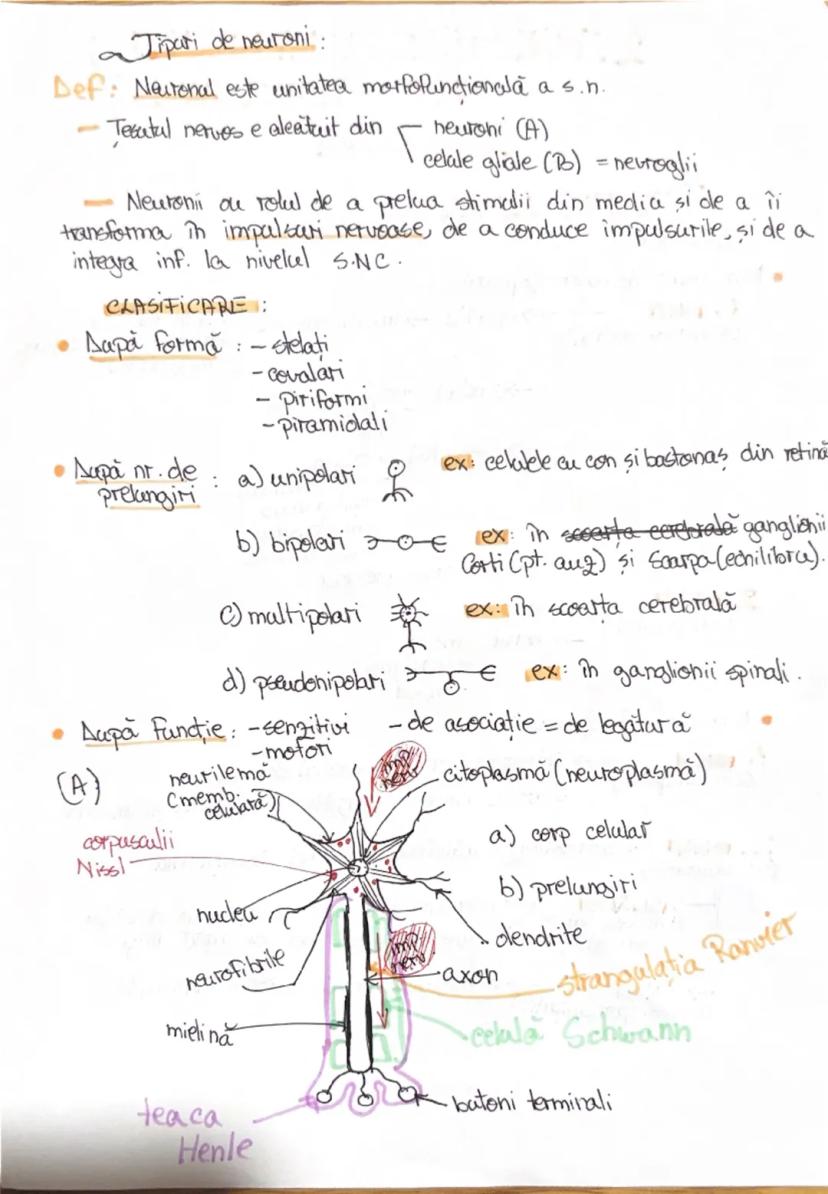 Tipuri de neuroni :
Def: Neuronul este unitatea morfofuncțională a s.n.
— Țesutul nervos e alcătuit din neuroni (A)
celule gliale (B) = nevroglii
— Neuronii au rolul de a prelua stimulii din mediu și de a îi
transforma în impulsuri nervoase, de a conduce impulsurile, și de a
integra inf. la nivelul S.NC.
CLASIFICARE :
• După formă : - stelați
- ovalari
- piriformi
- piramidali
• După nr. de prelungiri : a) unipolari ex: celulele cu con și bastonaș din retină
b) bipolari ex: în scoarța cerebrală ganglionii
Corti (pt. auz) și Scarpa (echilibru).
c) multipolari ex: în scoarța cerebrală
d) pseudonipolari ex: în ganglionii spinali.
• După funcție : - senzitivi - de asociație = de legătură
- motori
(A)
neurilemă
(memb. celulară)
imp nerv
citoplasmă (neuroplasmă)
corpusculii
Nissl
a) corp celular
b) prelungiri
nucleu
dendrite
neurofibrile
imp nerv
axon
strangulația Ranvier
mielină
celulă Schwann
butoni terminali
teaca
Henle